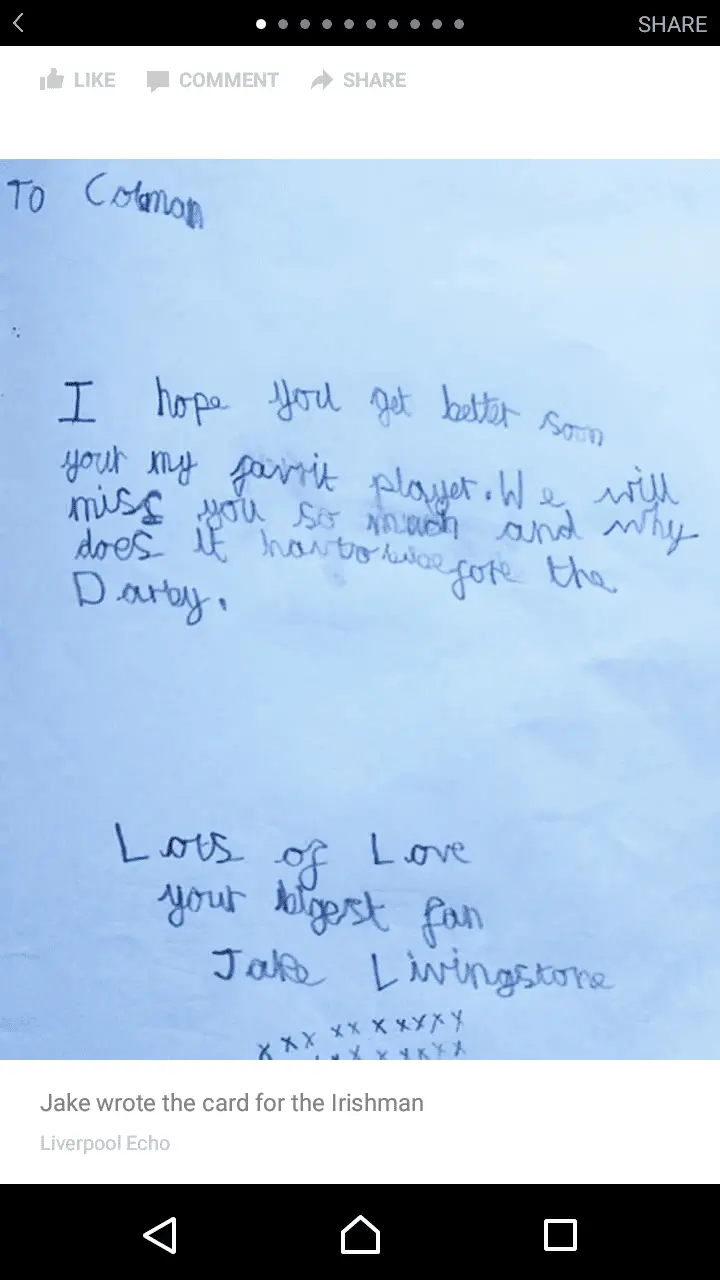 SHARE
LIKE COMMENT SHARE
TO Colman
I hope you get better soon
your my favrit player. We will
miss you so much and why
does it the
Darby.
Lots of Love
your bigest fan
Jake Livingstone
xxx xx x xxxx
x x xxxx
Jake wrote the card for the Irishman
Liverpool Echo